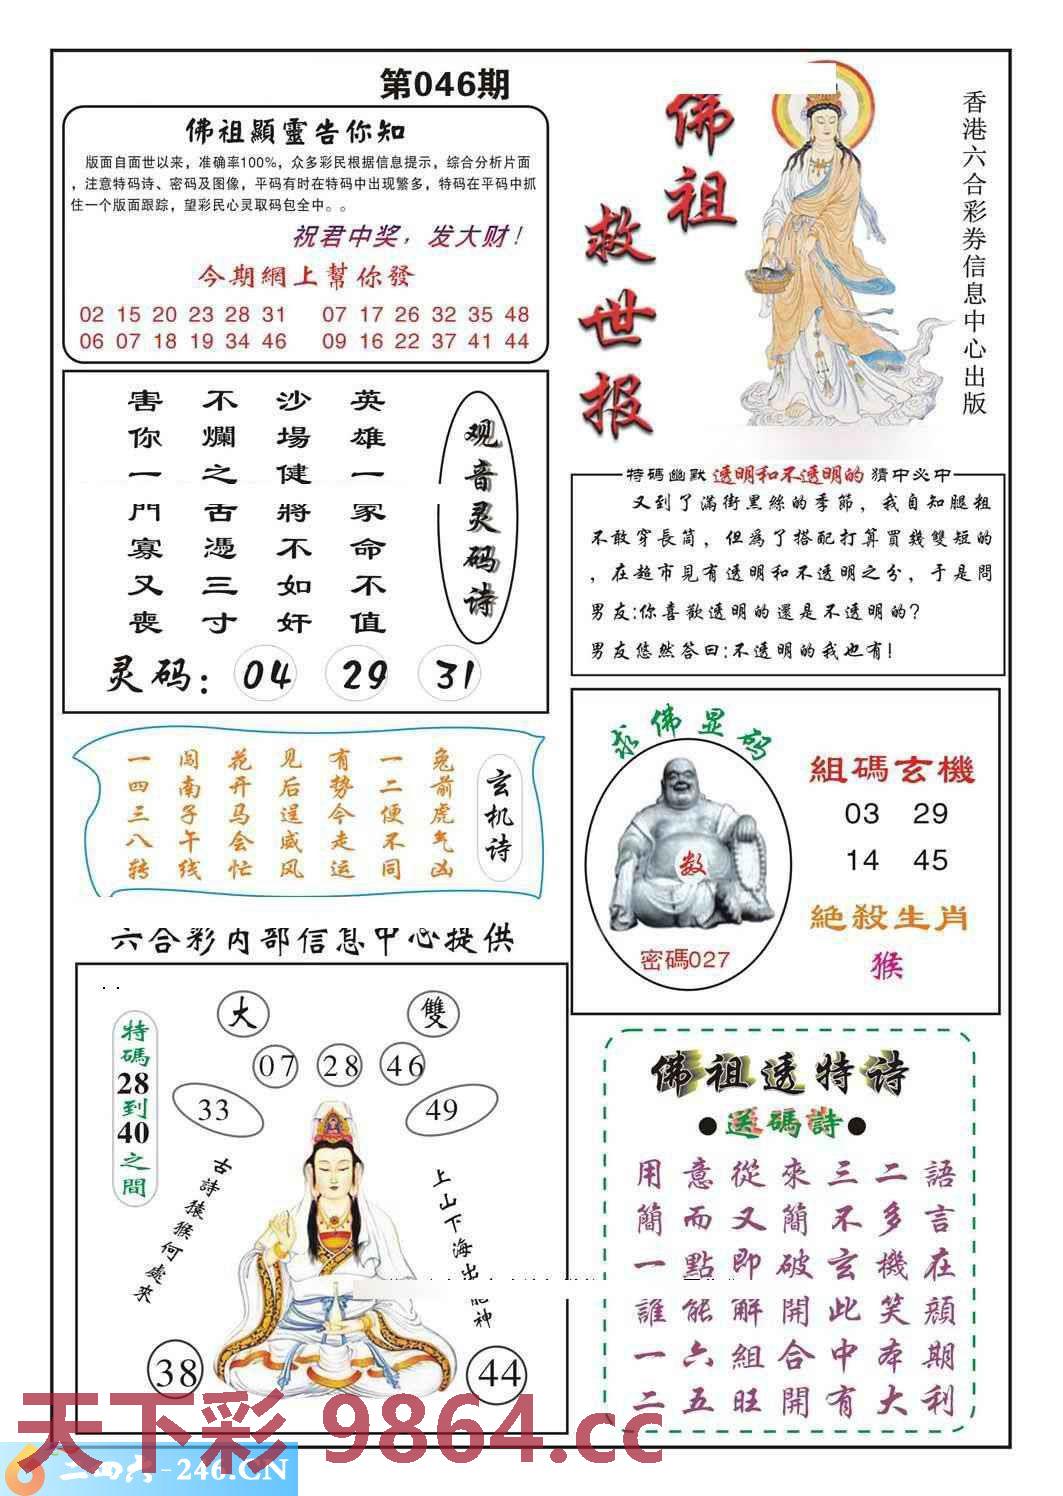 第046期
佛祖顯靈告你知
版面自面世以来，准确率100%，众多彩民根据信息提示，综合分析片面
，注意特码诗、密码及图像，平码有时在特码中出现繁多，特码在平码中抓
住一个版面跟踪，望彩民心灵取码包全中。。
祝君中奖，发大财！
今期網上幫你發
02 15 20 23 28 31 07 17 26 32 35 48
06 07 18 19 34 46 09 16 22 37 41 44
佛祖
救世报
香港六合彩券信息中心出版
观音灵码诗
英雄一冢命不值
沙場健將不如奸
不爛之舌憑三寸
害你一門寡又喪
灵码：04 29 31
特碼幽默 透明和不透明的 猜中必中
又到了滿街黑絲的季節，我自知腿粗
不敢穿長筒，但爲了搭配打算買幾雙短的
，在超市見有透明和不透明之分，于是問
男友:你喜歡透明的還是不透明的?
男友悠然答曰:不透明的我也有!
玄机诗
兔前虎气凶
一二便不同
有势今走运
见后逞威风
花开马会忙
闯南子午线
一四三八转
求佛显码
数
密碼027
組碼玄機
03 29
14 45
絕殺生肖
猴
六合彩内部信息中心提供
大
雙
07 28 46
33
49
特碼28到40之間
古詩猿猴何處來
上山下海出
神
38
44
佛祖透特诗
●送碼詩●
用意從來三二語
簡而又簡不多言
一點即破玄機在
誰能解開此笑顔
一六組合中本期
二五旺開有大利
天下彩 9864.cc
二四六-246.CN